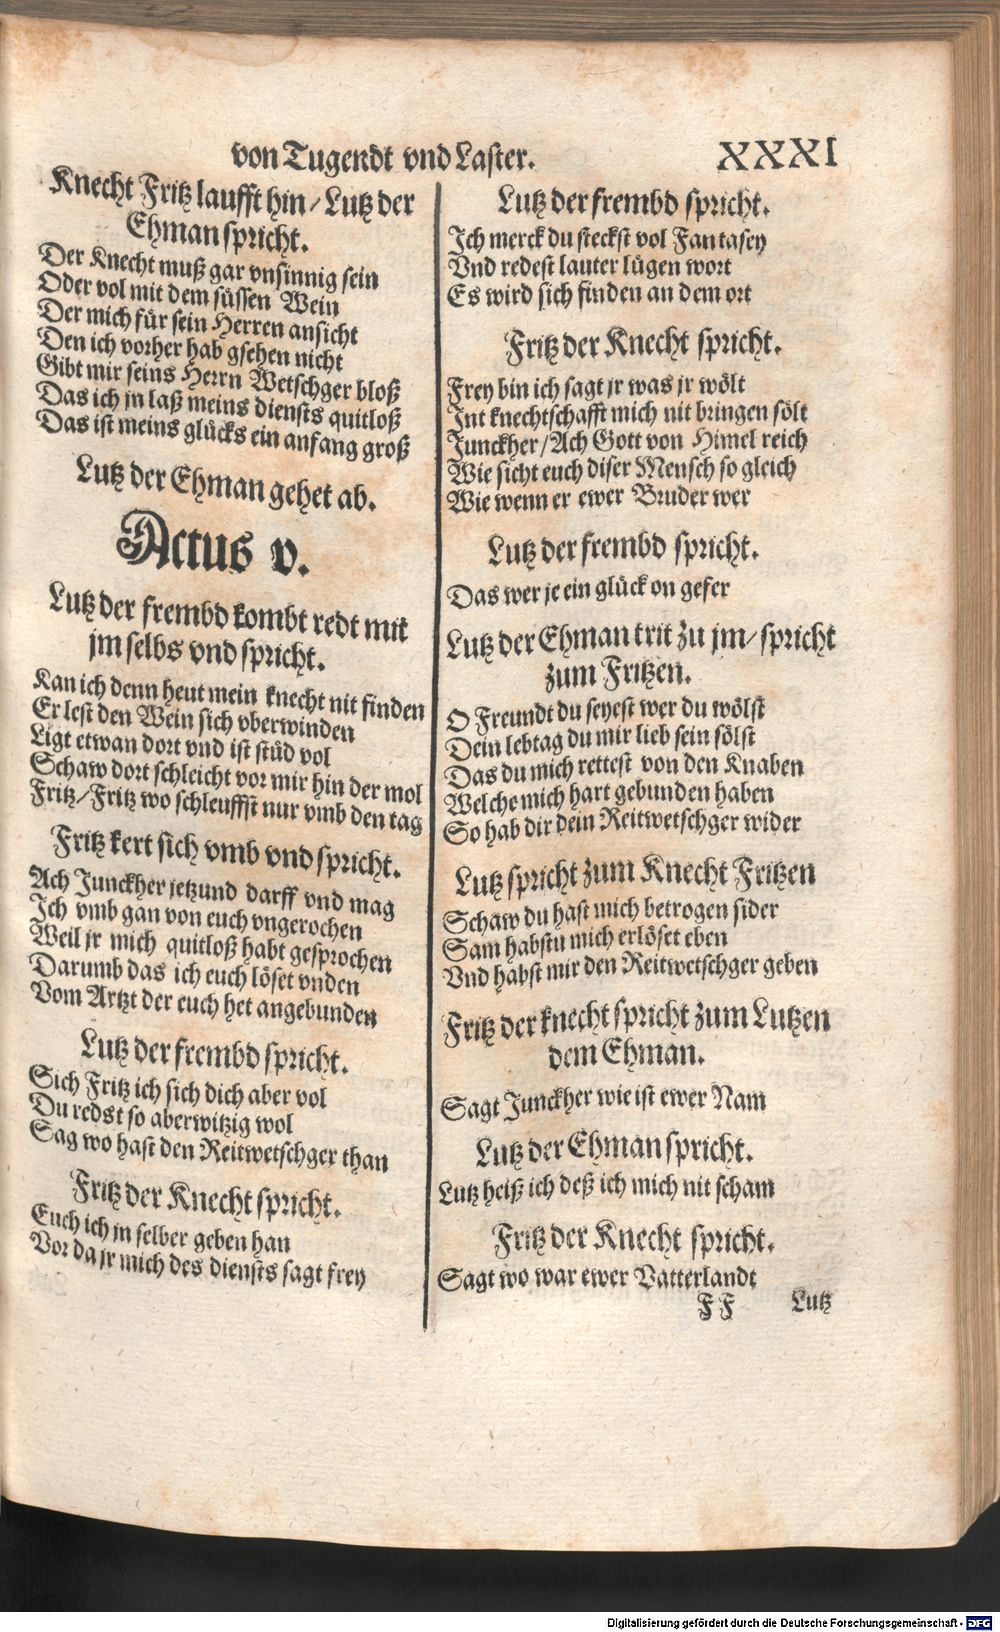 von Tugendt vnd Laster.
XXXI
Knecht Fritz laufft hin / Lutz der
Ehman spricht.
Der Knecht muß gar vnsinnig sein
Oder vol mit dem süssen Wein
Der mich für sein Herren ansicht
Den ich vorher hab gsehen nicht
Gibt mir seins Herrn Wetschger bloß
Das ich jn laß meins diensts quitloß
Das ist meins glücks ein anfang groß
Lutz der Ehman gehet ab.
Actus v.
Lutz der frembd kombt redt mit
jm selbs vnd spricht.
Kan ich denn heut mein knecht nit finden
Er lest den Wein sich vberwinden
Ligt etwan dort vnd ist stüd vol
Schaw dort schleicht vor mir hin der mol
Fritz / Fritz wo schleuffst nur vmb den tag
Fritz kert sich vmb vnd spricht.
Ach Junckher jetzund darff vnd mag
Ich vmb gan von euch vngerochen
Weil jr mich quitloß habt gesprochen
Darumb das ich euch löset vnden
Vom Artzt der euch het angebunden
Lutz der frembd spricht.
Sich Fritz ich sich dich aber vol
Du redst so aberwitzig wol
Sag wo hast den Reitwetschger than
Fritz der Knecht spricht.
Euch ich jn selber geben han
Vor da jr mich des diensts sagt frey
Lutz der frembd spricht.
Ich merck du steckst vol Fantasey
Vnd redest lauter lügen wort
Es wird sich finden an dem ort
Fritz der Knecht spricht.
Frey bin ich sagt jr was jr wölt
Int knechtschafft mich nit bringen sölt
Junckher / Ach Gott von Himel reich
Wie sicht euch diser Mensch so gleich
Wie wenn er ewer Bruder wer
Lutz der frembd spricht.
Das wer je ein glück on gefer
Lutz der Ehman trit zu jm / spricht
zum Fritzen.
O Freundt du seyest wer du wölst
Dein lebtag du mir lieb sein sölst
Das du mich rettest von den Knaben
Welche mich hart gebunden haben
So hab dir dein Reitwetschger wider
Lutz spricht zum Knecht Fritzen
Schaw du hast mich betrogen sider
Sam habstu mich erlöset eben
Vnd habst mir den Reitwetschger geben
Fritz der knecht spricht zum Lutzen
dem Ehman.
Sagt Junckher wie ist ewer Nam
Lutz der Ehman spricht.
Lutz heiß ich deß ich mich nit scham
Fritz der Knecht spricht.
Sagt wo war ewer Vatterlandt
FF
Lutz
Digitalisierung gefördert durch die Deutsche Forschungsgemeinschaft - DFG